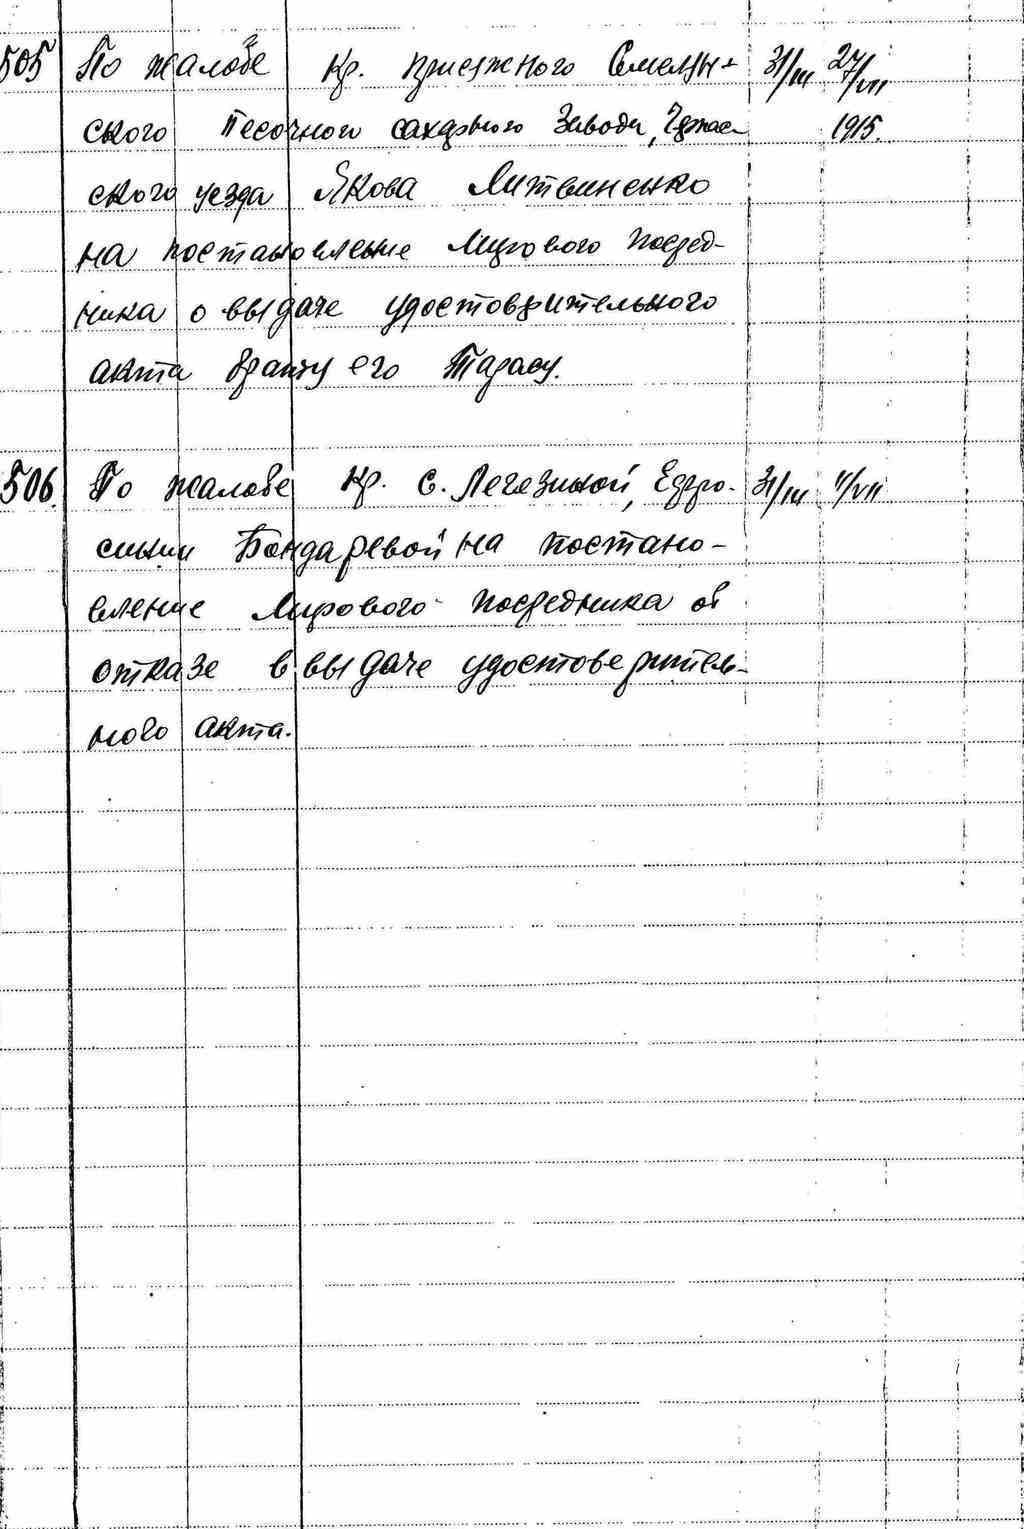 505 По жалобе кр. приезжного Смелян-
ского Песочного сахарного Завода, Черкас-
ского уезда Якова Литвиненко
на постановление Мирового Посред-
ника о выдаче удостоверительного
акта брату его Тарасу.
31/III 27/VII
1915.
506. По жалобе кр. с. Легезиной, Евфро-
синии Бондаревой на постано-
вление Мирового посредника об
отказе в выдаче удостоверитель-
ного акта.
31/III 11/VII